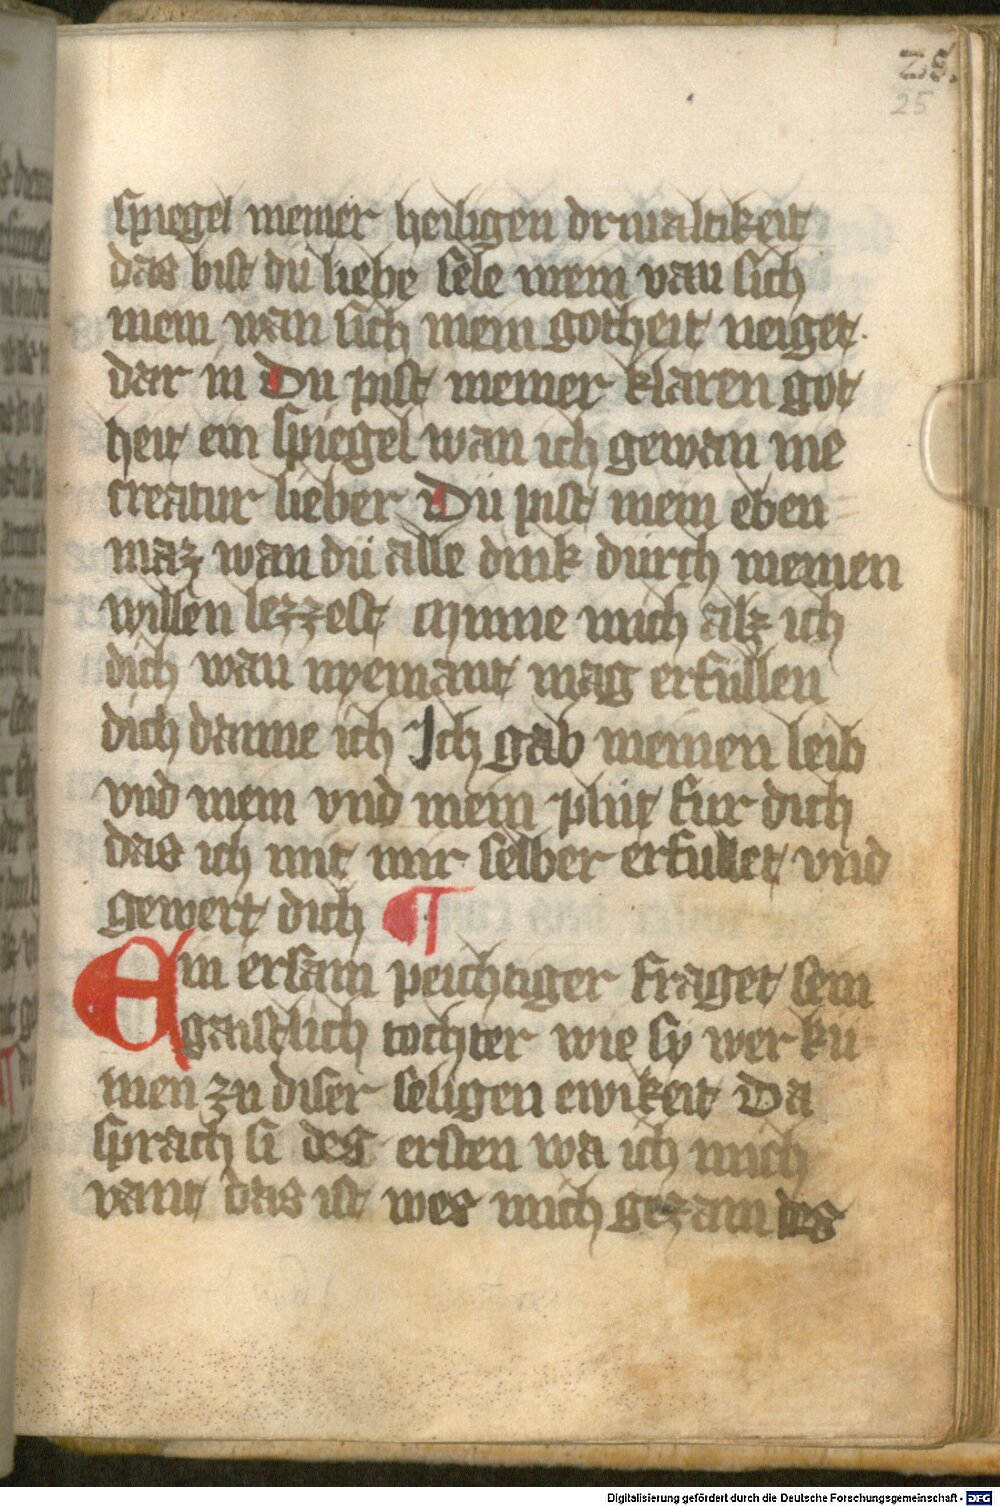 25.
25
spiegel meiner heiligen driualtikeit
das bist du liebe sele mein van sich
mein wan sich mein gotheit neiget
dar in Du pist meiner klaren got
heit ein spiegel wan ich gewan nie
creatur lieber Dü pist mein eben
maz wan dü alle dink dürch meinen
willen lezzest Mynne mich alz ich
dich wan nyemant mag erfüllen
dich danne ich Ich gab meinen leib
vnd mein vnd mein plüt fur dich
das ich mit mir selber erfullet vnd
gewert dich ¶
Ein ersam peichtiger fraget sein
gaistlich tochter wie sy wer kü
men zu diser seligen ewikeit Da
sprach si des ersten wa ich mich
vant das ist wes mich gezam des
Digitalisierung gefördert durch die Deutsche Forschungsgemeinschaft - DFG